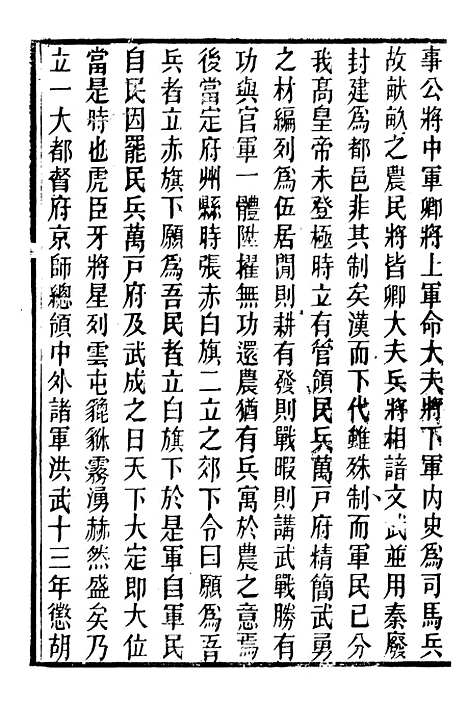 事公將中軍卿將上軍命大夫將下軍內史爲司馬兵
故畎畝之農民將皆卿大夫兵將相諳文武並用秦廢
封建爲都邑非其制矣漢而下代雖殊制而軍民已分
我高皇帝未登極時立有管領民兵萬戸府精簡武勇
之材編列爲伍居閒則耕有發則戰暇則講武戰勝有
功與官軍一體陞擢無功還農猶有兵寓於農之意焉
後當定府州縣時張赤白旗二立之郊下令曰願爲吾
兵者立赤旗下願爲吾民者立白旗下於是軍自軍民
自民因罷民兵萬戸府及武成之日天下大定即大位
當是時也虎臣牙將星列雲屯貔貅霧湧赫然盛矣乃
立一大都督府京師總領中外諸軍洪武十三年懲胡